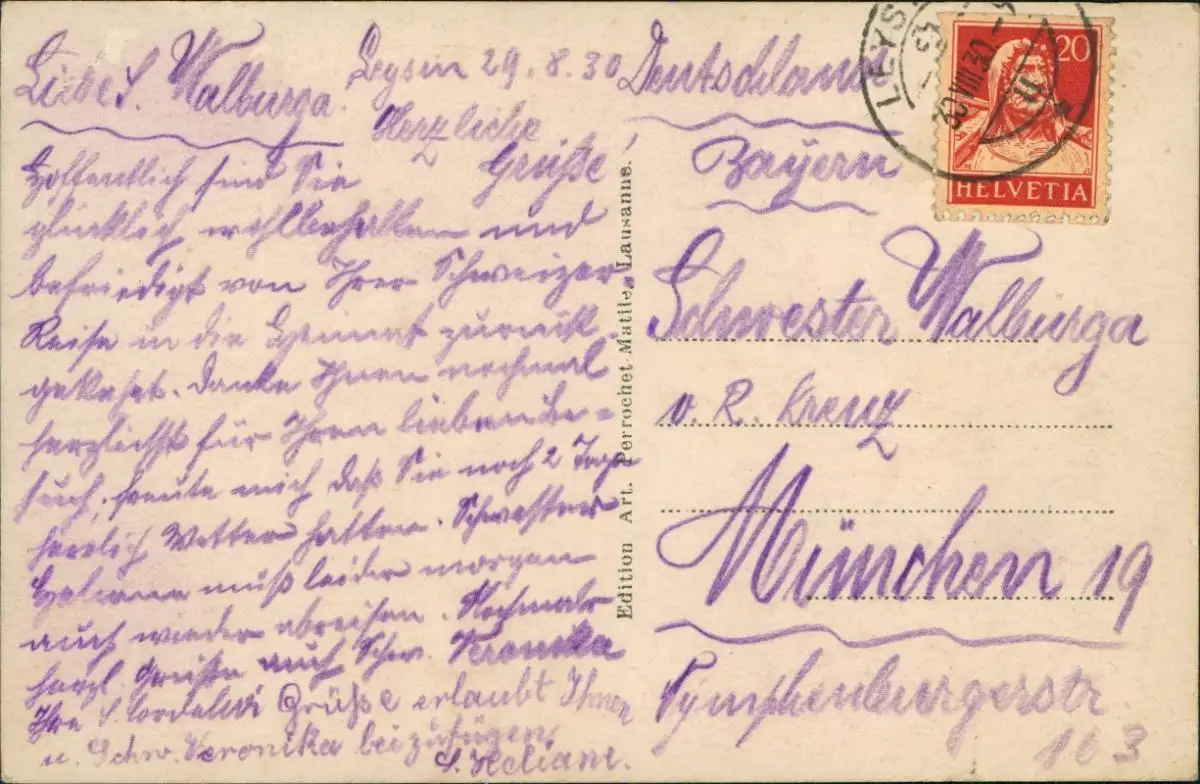 Leysin 29.8.30
Liebe S. Walburga.
Herzliche
Grüße!
Hoffentlich sind Sie
glücklich, wohlbehalten und
befriedigt von Ihrer Schweizer-
Reise in die Heimat zurück-
gekehrt. Danke Ihnen nochmal
herzlichst für Ihren lieben Be-
such, freute mich daß Sie noch 2 Tage
herrlich Wetter hatten. Schwester
Heliane muß leider morgen
auch wieder abreisen. Nochmals
herzl. Grüße auch Schw. Veronika
Ihre S.
Grüße erlaubt Ihnen
u. Schw. Veronika beizufügen
S. Heliane.
Edition Art. Perrochet-Matile, Lausanne.
LEYS
30 VIII 30
20
HELVETIA
Deutschland
Bayern
Schwester Walburga
v. R. Kreuz
München 19
Nymphenburgerstr
163